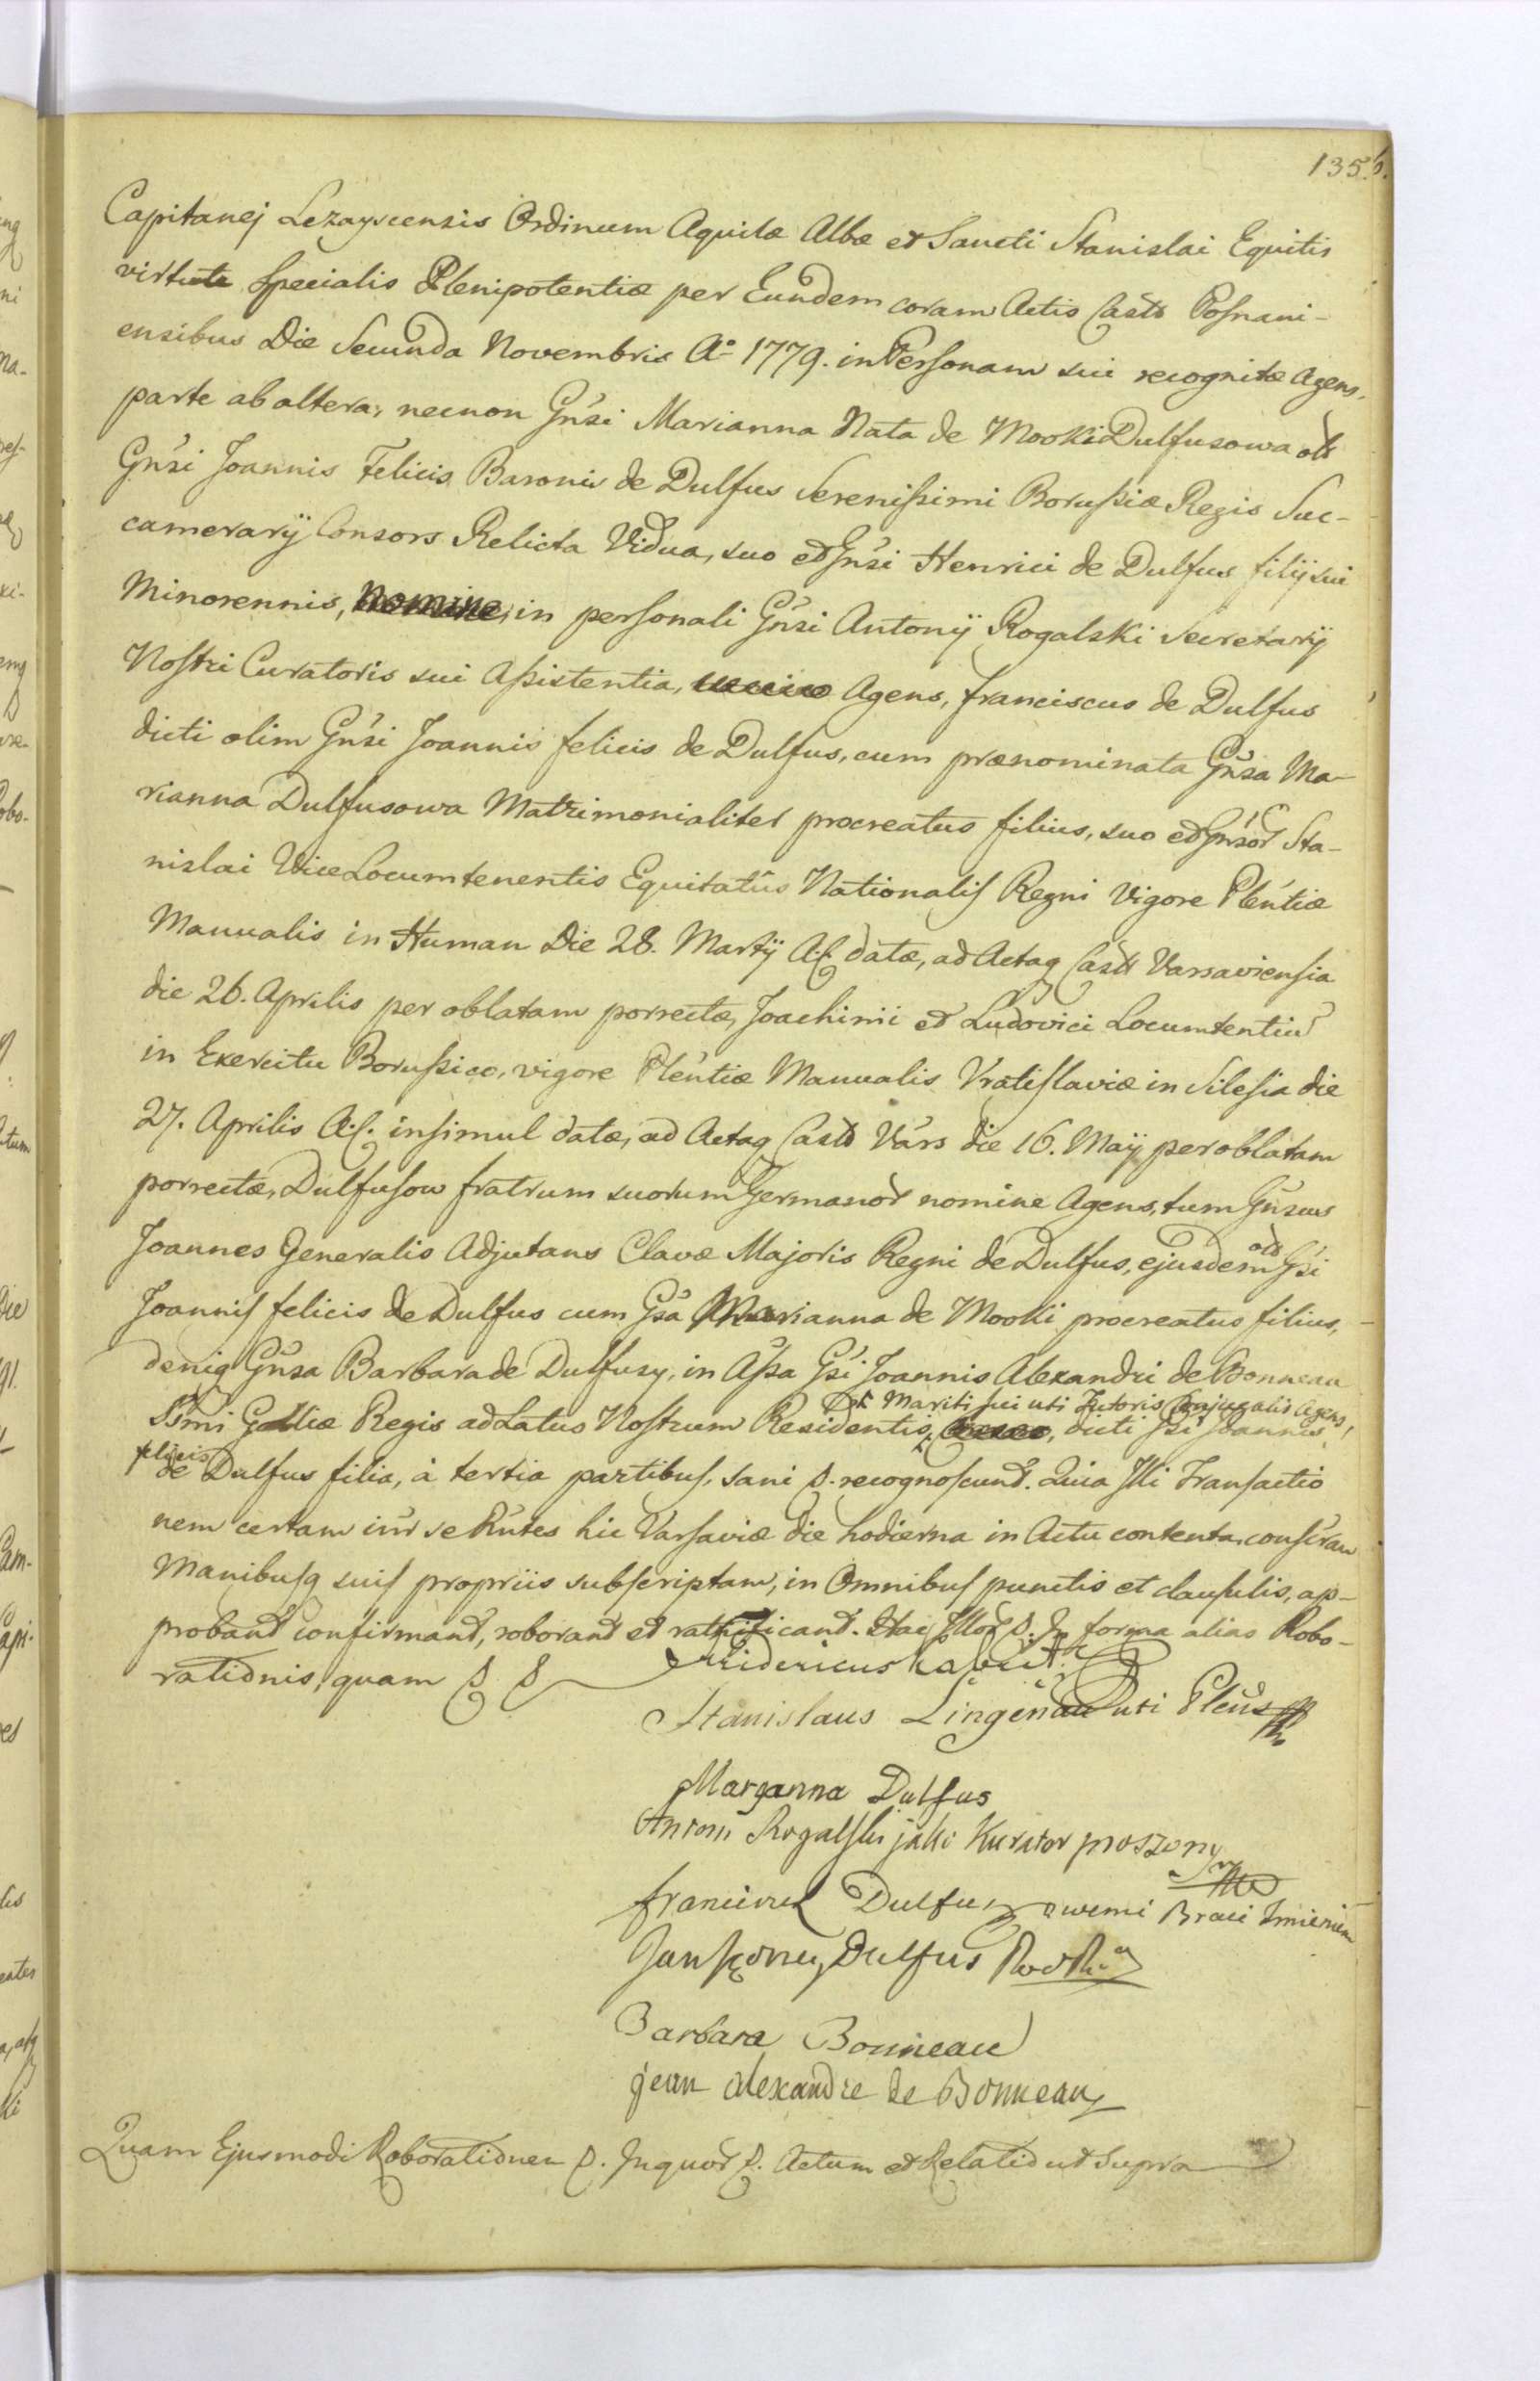 135.
Capitanej Lezayscensis Ordinum Aquilæ Albæ et Sancti Stanislai Equitis
virtute specialis Plenipotentiæ per Eundem coram Actis Castr Posnani-
ensibus Die Secunda Novembris Ao 1779. in Personam sui recognitæ Agens,
parte ab altera, necnon Gnsi Marianna Nata de Mooki Dulfusowa oli
Gnsi Joannis Felicis Baronis de Dulfus Serenissimi Borussiæ Regis Suc-
camerarÿ Consors Relicta Vidua, suo et Gnsi Henrici de Dulfus filÿ sui
Minorennis, in personali Gnsi Antonÿ Rogalski Secretarÿ
Nostri Curatoris sui Assistentia, Agens, franciscus de Dulfus
dicti olim Gnsi Joannis felicis de Dulfus, cum prænominata Gnsa Ma-
rianna Dulfusowa Matrimonialiter procreatus filius, suo et Gnsor Sta-
nislai ViceLocumtenentis Equitatûs Nationalis Regni Vigore Plentiæ
Manualis in Human Die 28. Martÿ A.C. datæ, ad Actaq Castr Varsaviensia
die 26. Aprilis per oblatam porrectæ, Joachimi et Ludovici Locumtentiu
in Exercitu Borussico, vigore Plentiæ Manualis Vratislaviæ in Silesia die
27. Aprilis A.C. insimul datæ, ad Actaq Castr Vars die 16. Maÿ per oblatam
porrectæ, Dulfusow fratrum suorum Germanor nomine Agens, tum Gnsus
Joannes Generalis Adjutans Clavæ Majoris Regni de Dulfus, ejusdem oli Gsi
Joannis felicis de Dulfus cum Gsa Marianna de Mooki procreatus filius,
deniq Gnsa Barbara de Dulfusy, in Assa Gsi Joannis Alexandri de Bonneau
Mariti sui uti Tutoris Conjugalis Agens,
Ssmi Galliæ Regis ad Latus Nostrum Residentis, dicti Gsi Joannis
felicis
de Dulfus filia, à tertia partibus, sani p. recognoscunt. Quia Illi Transactio
nem certam inter se hic Varsaviæ die hodierna in Actu contenta,
Manibusq suis propriis subscriptam, in Omnibus punctis et clausulis, ap-
probant confirmant, roborant et rathificant. Hac forma alias Robo-
rationis, quam p p
Fridericus Kabrit
Stanislaus Lingenau uti Plens
Maryanna Dulfus
Antoni Rogalski jako Kurator proszony
franciszek Dulfus swemi Braci Imieniem
Jan Dulfus
Barbara Bonneau
jean alexandre de Bonneau
Quam Ejusmodi Roborationem p. Inquor p. Actum et Relatio ut supra